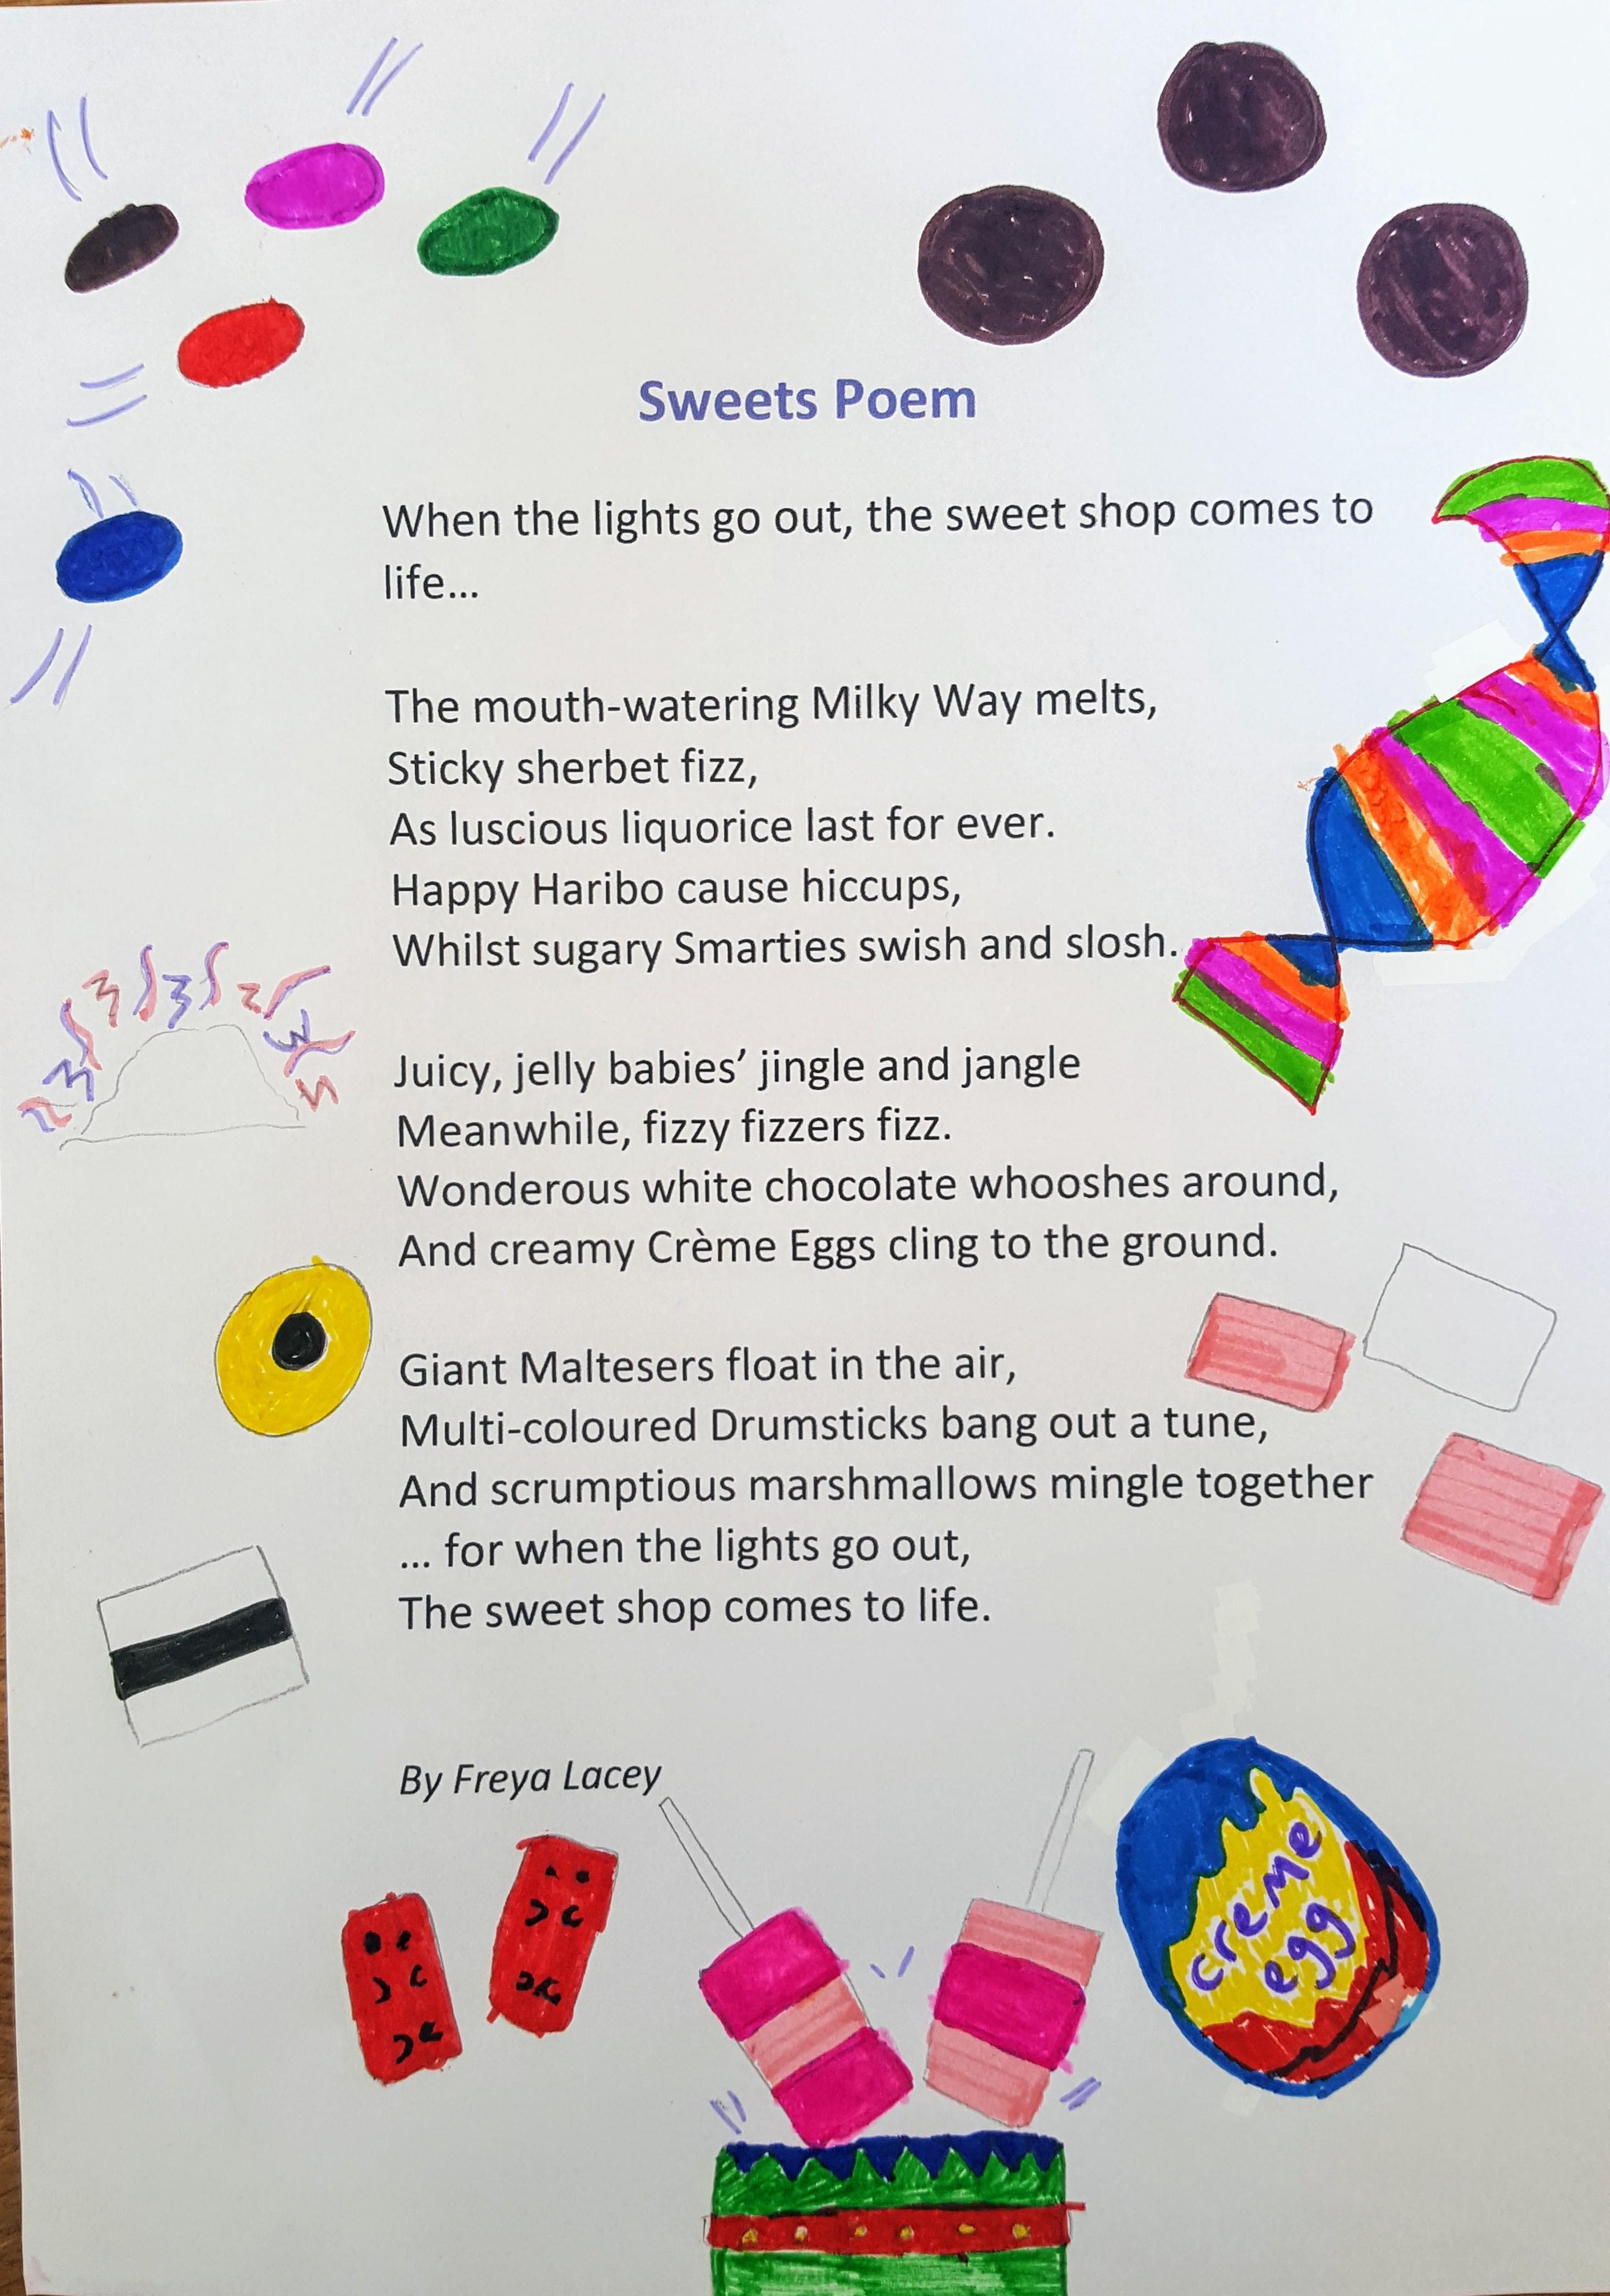 Sweets Poem
When the lights go out, the sweet shop comes to
life...
The mouth-watering Milky Way melts,
Sticky sherbet fizz,
As luscious liquorice last for ever.
Happy Haribo cause hiccups,
Whilst sugary Smarties swish and slosh.
Juicy, jelly babies’ jingle and jangle
Meanwhile, fizzy fizzers fizz.
Wonderous white chocolate whooshes around,
And creamy Crème Eggs cling to the ground.
Giant Maltesers float in the air,
Multi-coloured Drumsticks bang out a tune,
And scrumptious marshmallows mingle together
... for when the lights go out,
The sweet shop comes to life.
By Freya Lacey
creme
egg